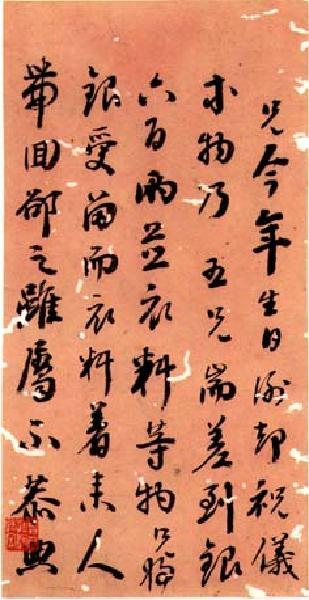 兄今年生日謝却祝儀
物乃五兄耑差到銀
六百兩並衣料等物只將
銀受留而衣料着来人
帶回卻之雖屬不恭